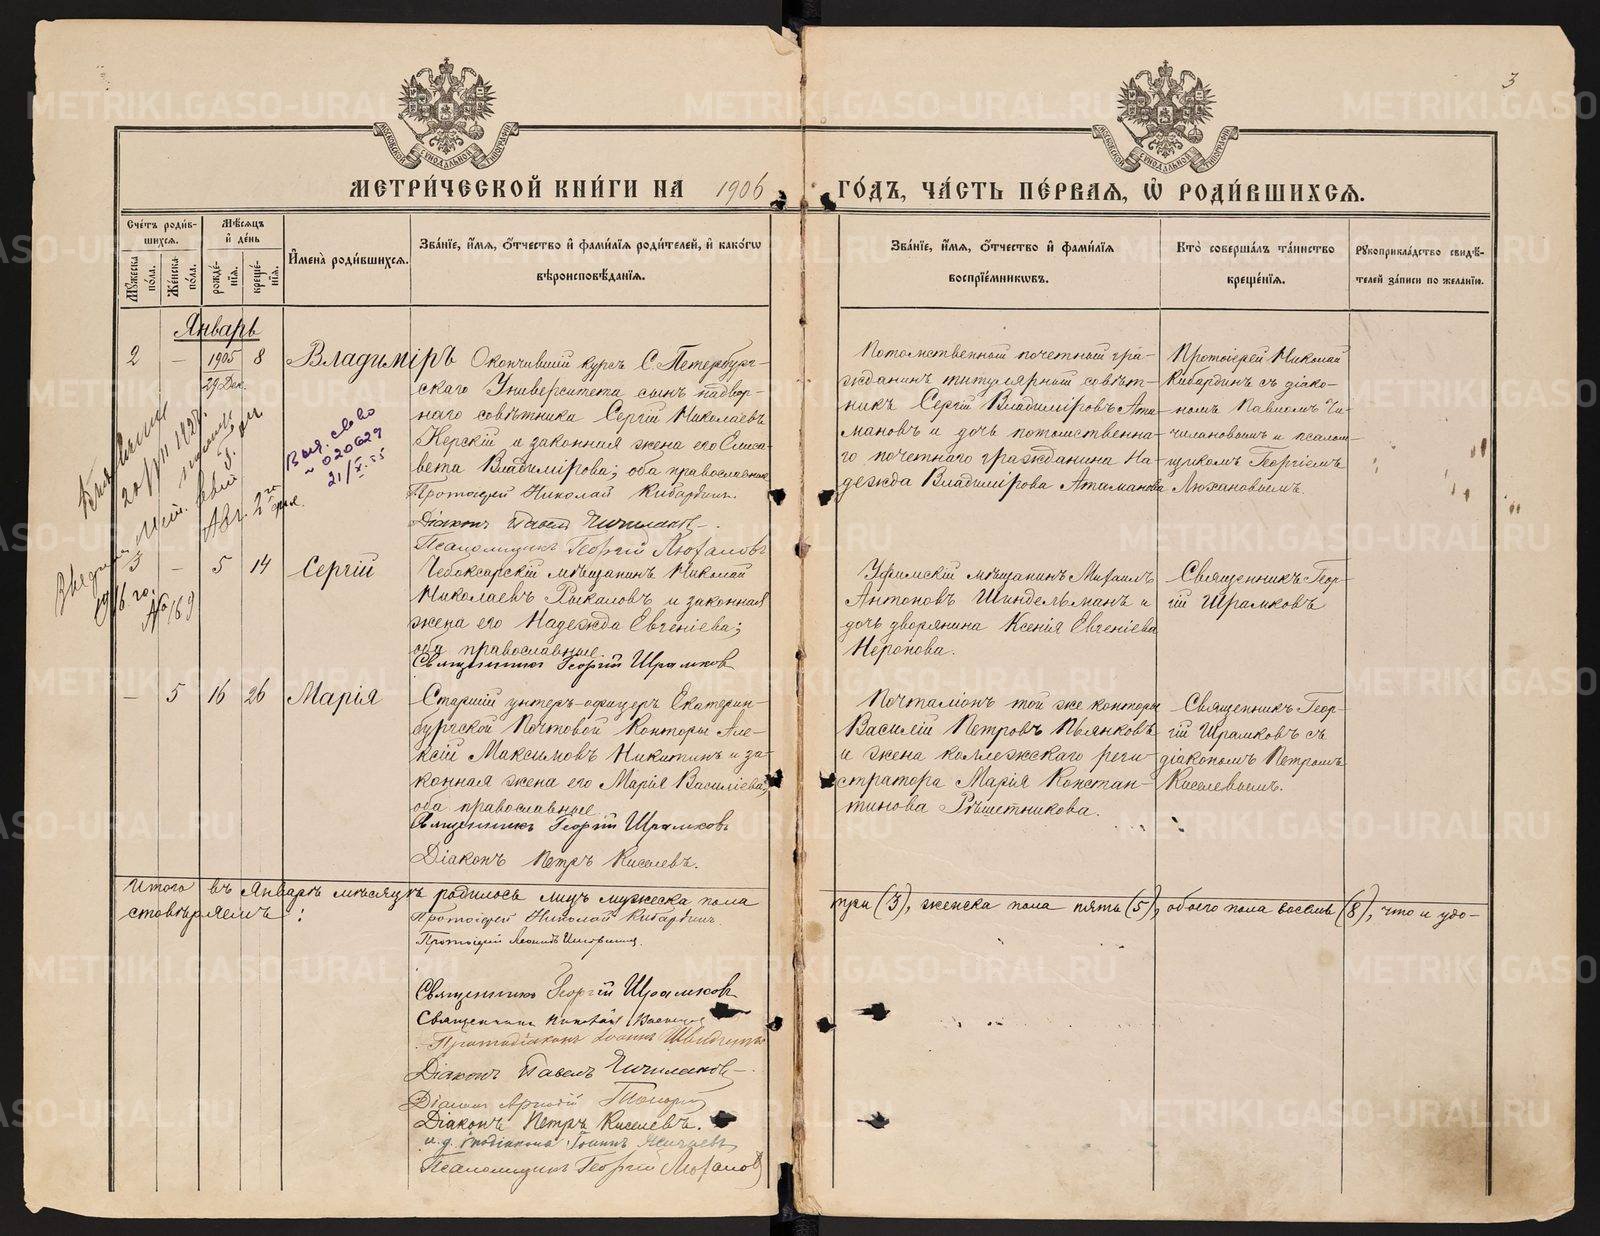 3
МОСКОВСКОЙ СѴНОДАЛЬНОЙ ТИПОГРАФІИ
МОСКОВСКОЙ СѴНОДАЛЬНОЙ ТИПОГРАФІИ
МЕТРИ́ЧЕСКОЙ КНИ́ГИ НА 1906 ГО́ДЪ, ЧА́СТЬ ПЕ́РВАЯ, Ѡ҆ РОДИ́ВШИХСЯ.
Сче́тъ роди́в-
шихся.
Му́жеска по́ла.
Же́нска по́ла.
Мѣ́сяцъ
и҆ де́нь
рожде́-
нїя.
креще́-
нїя.
И҆мена̀ роди́вшихся.
Зва́нїе, и҆́мя, ѻ҆́тчество и҆ фами́лїя роди́телей, и҆ како́гѡ
вѣроисповѣ́данїя.
Зва́нїе, и҆́мя, ѻ҆́тчество и҆ фами́лїя
воспрїе́мникѡвъ.
Кто̀ соверша́лъ та́инство
креще́нїя.
Рꙋкоприкла́дство свидѣ́-
телей за́писи по жела́нїю.
Январь
2 — 1905 8
29 Дек.
Владиміръ
Окончившій курсъ С. Петербург-
скаго Университета сынъ надвор-
наго совѣтника Сергій Николаевъ
Нерскій и законная жена его Елиса-
вета Владимірова; оба православные
Протоіерей Николай Кибардинъ.
Діаконъ Павелъ Чичилановъ.
Псаломщикъ Георгій Люхановъ
Потомственный почетный гра-
жданинъ титулярный совѣт-
никъ Сергій Владиміровъ Ата-
мановъ и дочь потомственна-
го почетнаго гражданина На-
дежда Владимірова Атаманова
Протоіерей Николай
Кибардинъ съ діако-
номъ Павломъ Чи-
чилановымъ и псалом-
щикомъ Георгіемъ
Люхановымъ.
Выд. св-во
№ 020629
21/X.55
1916 го.
№ 169
3 — 5 14 Сергій
Чебоксарскій мѣщанинъ Николай
Николаевъ Рыкаловъ и законная
жена его Надежда Евгеніева;
оба православные.
Священникъ Георгій Шрамковъ
Уфимскій мѣщанинъ Михаилъ
Антоновъ Шиндельманъ и
дочь дворянина Ксенія Евгеніева
Неронова.
Священникъ Геор-
гій Шрамковъ
— 5 16 26 Марія
Старшій унтеръ-офицеръ Екатерин-
бургской Почтовой Конторы Але-
ксій Максимовъ Никитинъ и за-
конная жена его Марія Василіева;
оба православные.
Священникъ Георгій Шрамковъ
Діаконъ Петръ Киселевъ.
Почталіонъ той же конторы
Василій Петровъ Пьянковъ
и жена коллежскаго реги-
стратора Марія Констан-
тинова Рѣшетникова.
Священникъ Геор-
гій Шрамковъ съ
діакономъ Петромъ
Киселевымъ.
Итого въ Январѣ мѣсяцѣ родилось лицъ мужеска пола три (3), женска пола пять (5), обоего пола восемь (8), что и удо-
стовѣряемъ:
Протоіерей Николай Кибардинъ.
Протоіерей
Священникъ Георгій Шрамковъ
Священникъ
Протодіаконъ
Діаконъ Павелъ Чичилановъ.
Діаконъ
Діаконъ Петръ Киселевъ.
и. д.
Псаломщикъ Георгій Люхановъ
METRIKI.GASO-URAL.RU